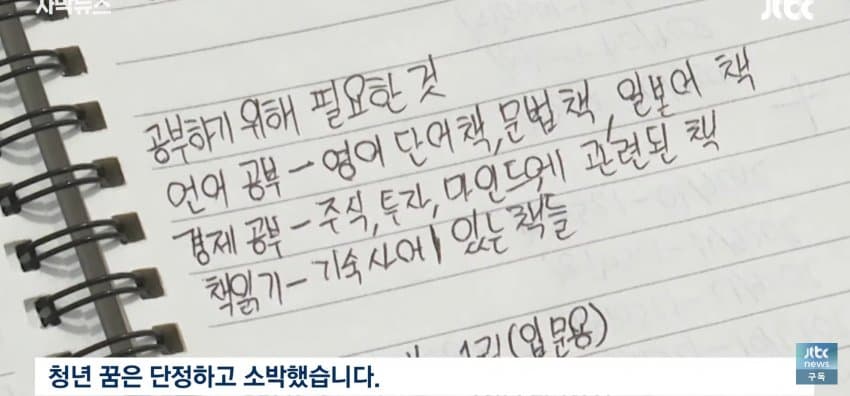 자막뉴스
jtbc
공부하기 위해 필요한 것
언어 공부 - 영어 단어책, 문법책, 일본어 책
경제 공부 - 주식, 투자, 마인드에 관련된 책
책읽기 - 기숙사에 있는 책들
(입문용)
청년 꿈은 단정하고 소박했습니다.
jtbc
news
구독